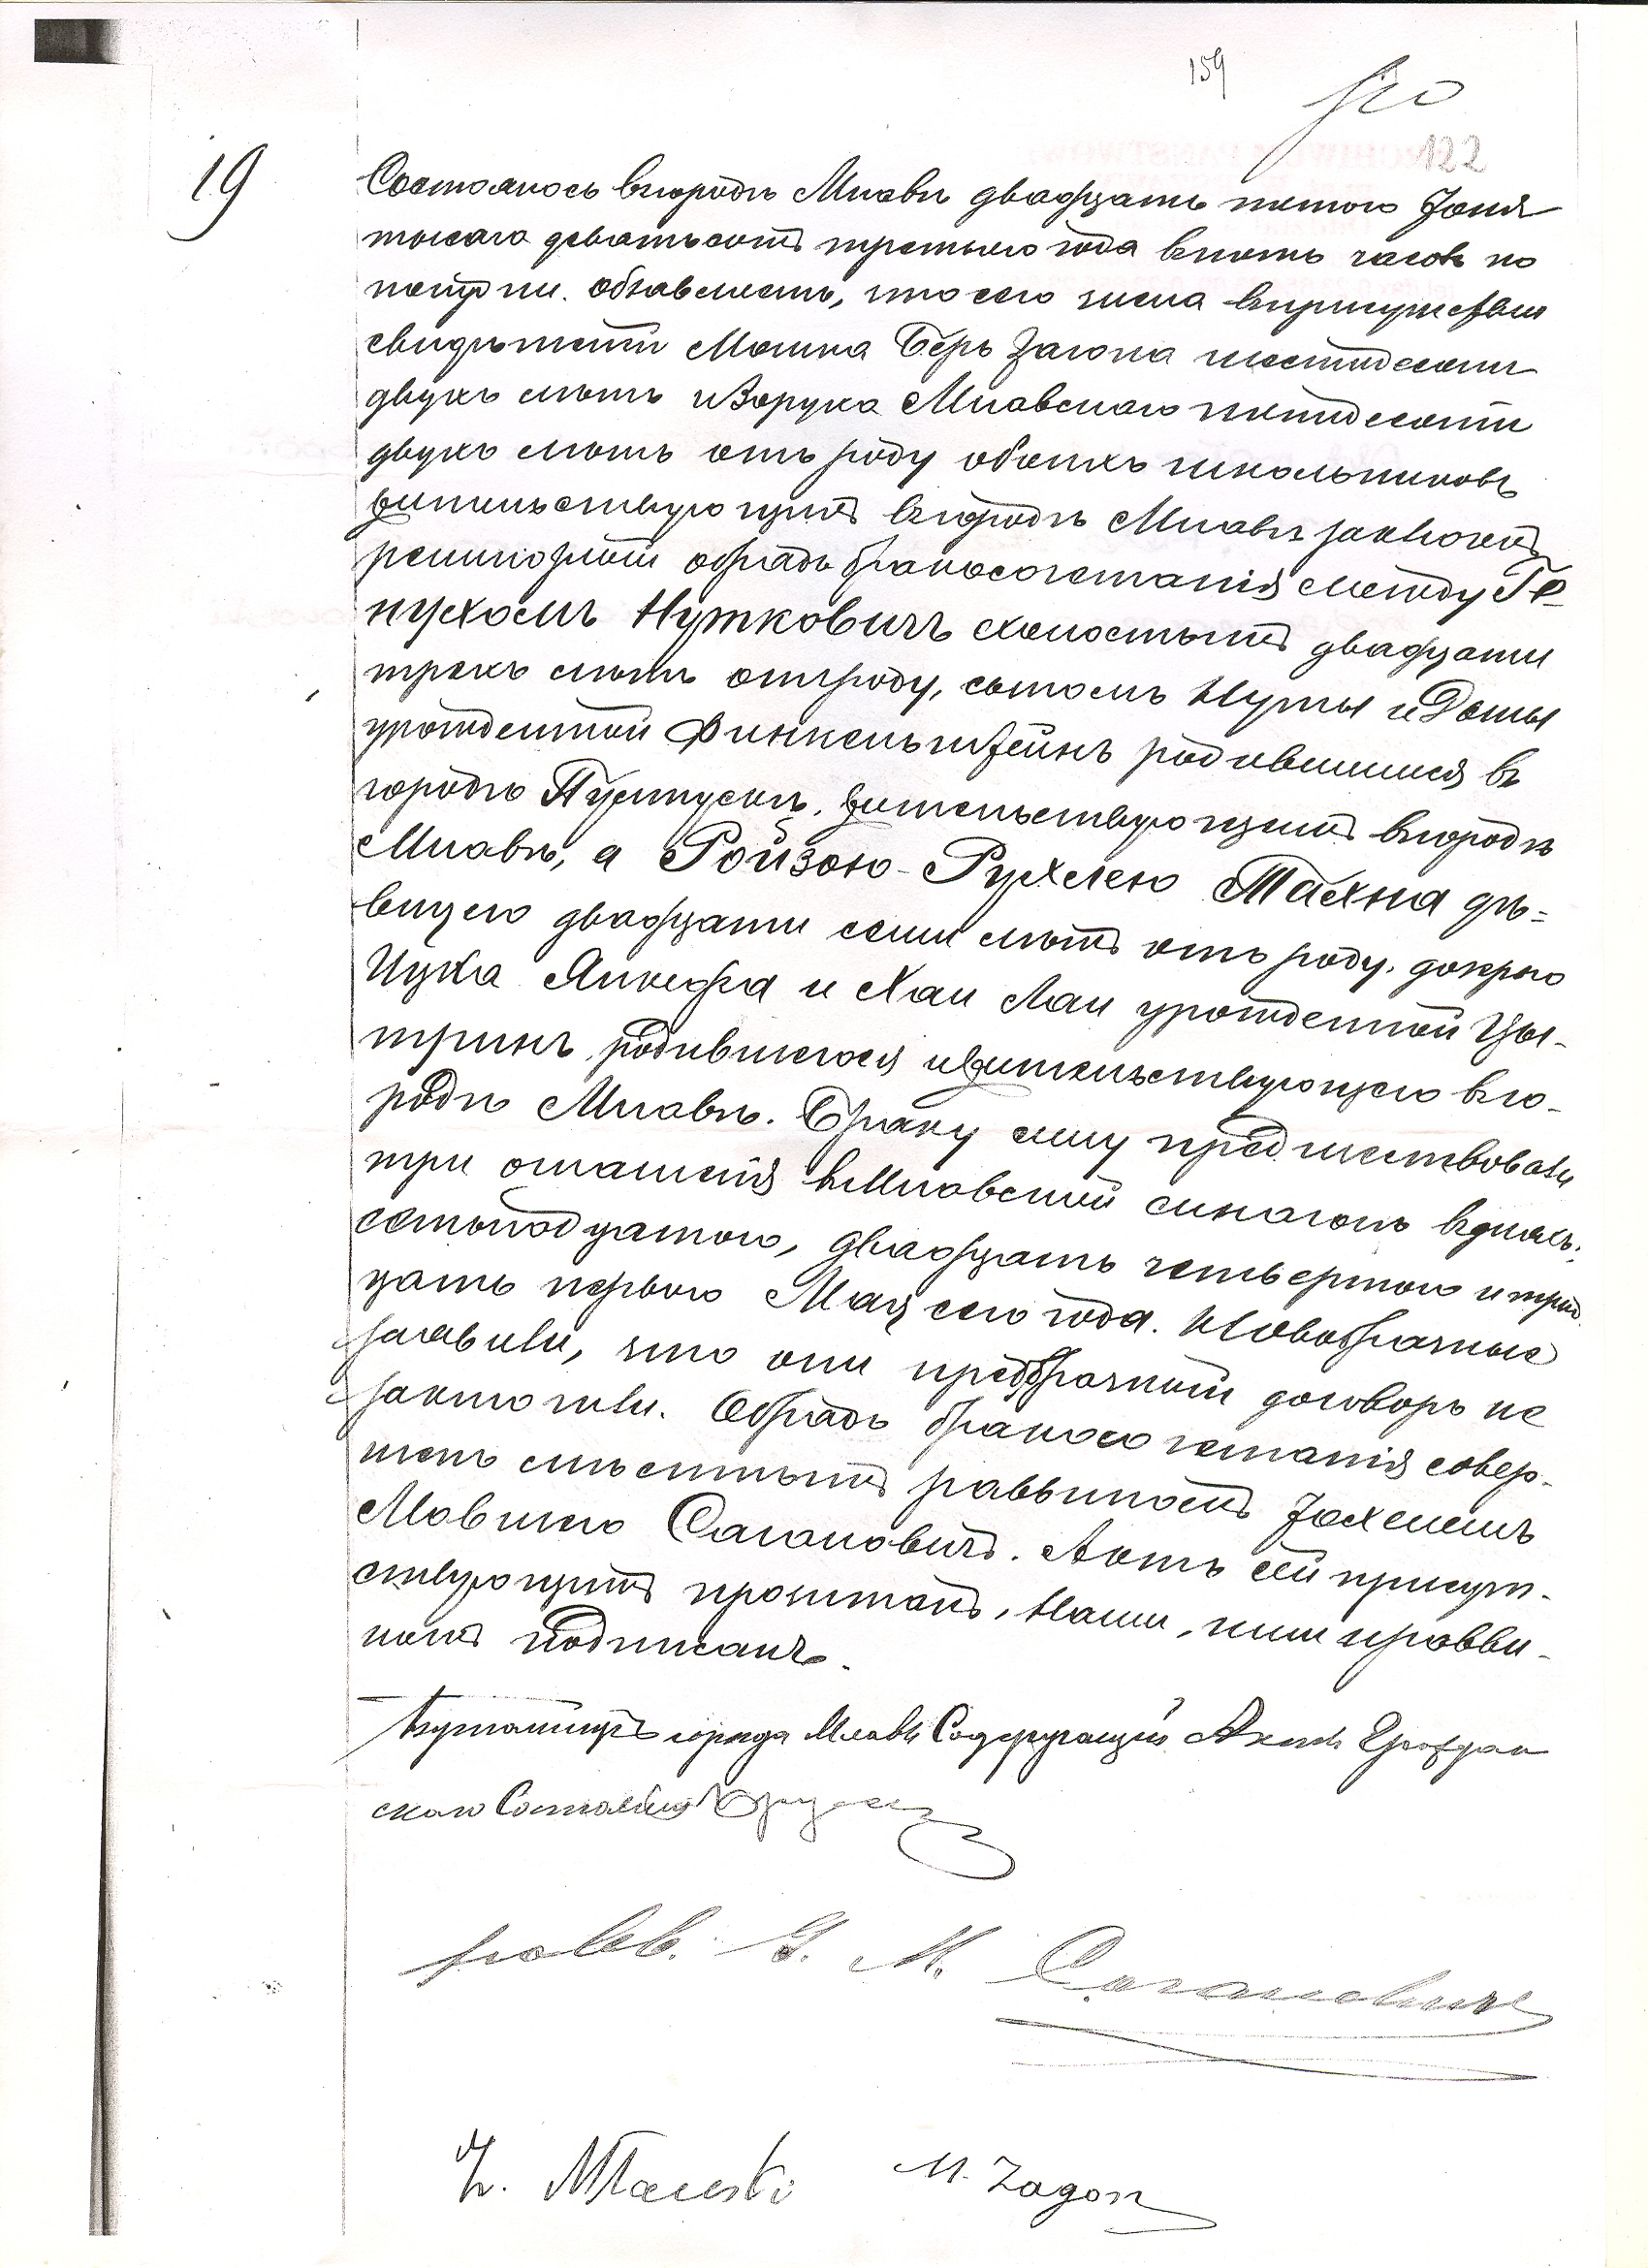 159
122
19
Состоялось въ городѣ Млавѣ двадцать пятого Іюня
тысяча девятьсотъ третьяго года въ пять часовъ по
полудни. Объявляемъ, что сего числа въ присутствіи
свидѣтелей Мошка Беръ Загона шестидесяти
двухъ лѣтъ и Борука Млавскаго пятидесяти
двухъ лѣтъ отъ роду обоихъ школьниковъ
жительствующихъ въ городѣ Млавѣ заключенъ
религіозный обрядъ бракосочетанія между Ге-
нухомъ Нутковичъ холостымъ двадцати
трехъ лѣтъ отъ роду, сыномъ Нуты и
урожденной Финкельштейнъ родившимся въ
городѣ Пултускѣ, жительствующимъ въ городѣ
Млавѣ, а Ройзою-Рухлею Тахна дѣ=
вицею двадцати семи лѣтъ отъ роду, дочерью
Ицка Янкефа и Хаи Лаи урожденной Цы-
тринъ, родившеюся и жительствующею въ го-
родѣ Млавѣ. Браку сему предшествовали
три оглашенія въ Млавской синагогѣ въ дняхъ:
семьнадцатого, двадцать четвертого и трид-
цать перваго Мая сего года. Новобрачные
заявили, что они предбрачный договоръ не
заключили. Обрядъ бракосочетанія совер-
шенъ мѣстнымъ раввиномъ Іохелемъ
Мовшею Сагановичъ. Актъ сей присут-
ствующимъ прочитанъ, Нами, ими и раввин-
номъ подписанъ.
Бургомистръ города Млавы Содержащій Акты Граждан
скаго Состоянія
равв. I. M. Сагановичъ
M. Zagon